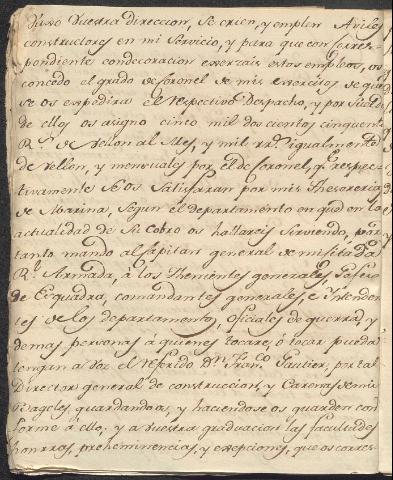 vaxo vuestra direccion, se crien, y emplen Aviles
constructores en mi Servicio, y para que con corres-
pondiente condecoracion exerzais estos empleos, os
concedo el grado de Coronel de mis exercitos de que
se os expedira el respectivo despacho, y por sueldo
de ellos os asigno cinco mil doscientos cinquenta
R.s de Vellon al Mes, y mil rr.s igualmente
de vellon, y mensuales por el de Coronel, q.e respec-
tivamente se os satisfarran por mis Thesoreria
de Marina, segun el departamento en que en la
actualidad de su cobro os hallareis sirviendo, por
tanto mando al Capitan general de mi
R.l Armada, â los Thenientes generales, Gefes
de Esquadra, comandantes generales, e Yntenden
tes de los departamento, oficiales de guerra, y
demas personas â quienes tocare, ô tocar pueda
tengan a vos el referido D.n Fran.co Gautier, por tal
Director general de construccion, y Carenas de mis
Bageles, guardandoos, y haciendose os guarden con
forme â ello; y a vuestra graduacion las facultades
honrras, preheminencias, y exepciones, que os corres-